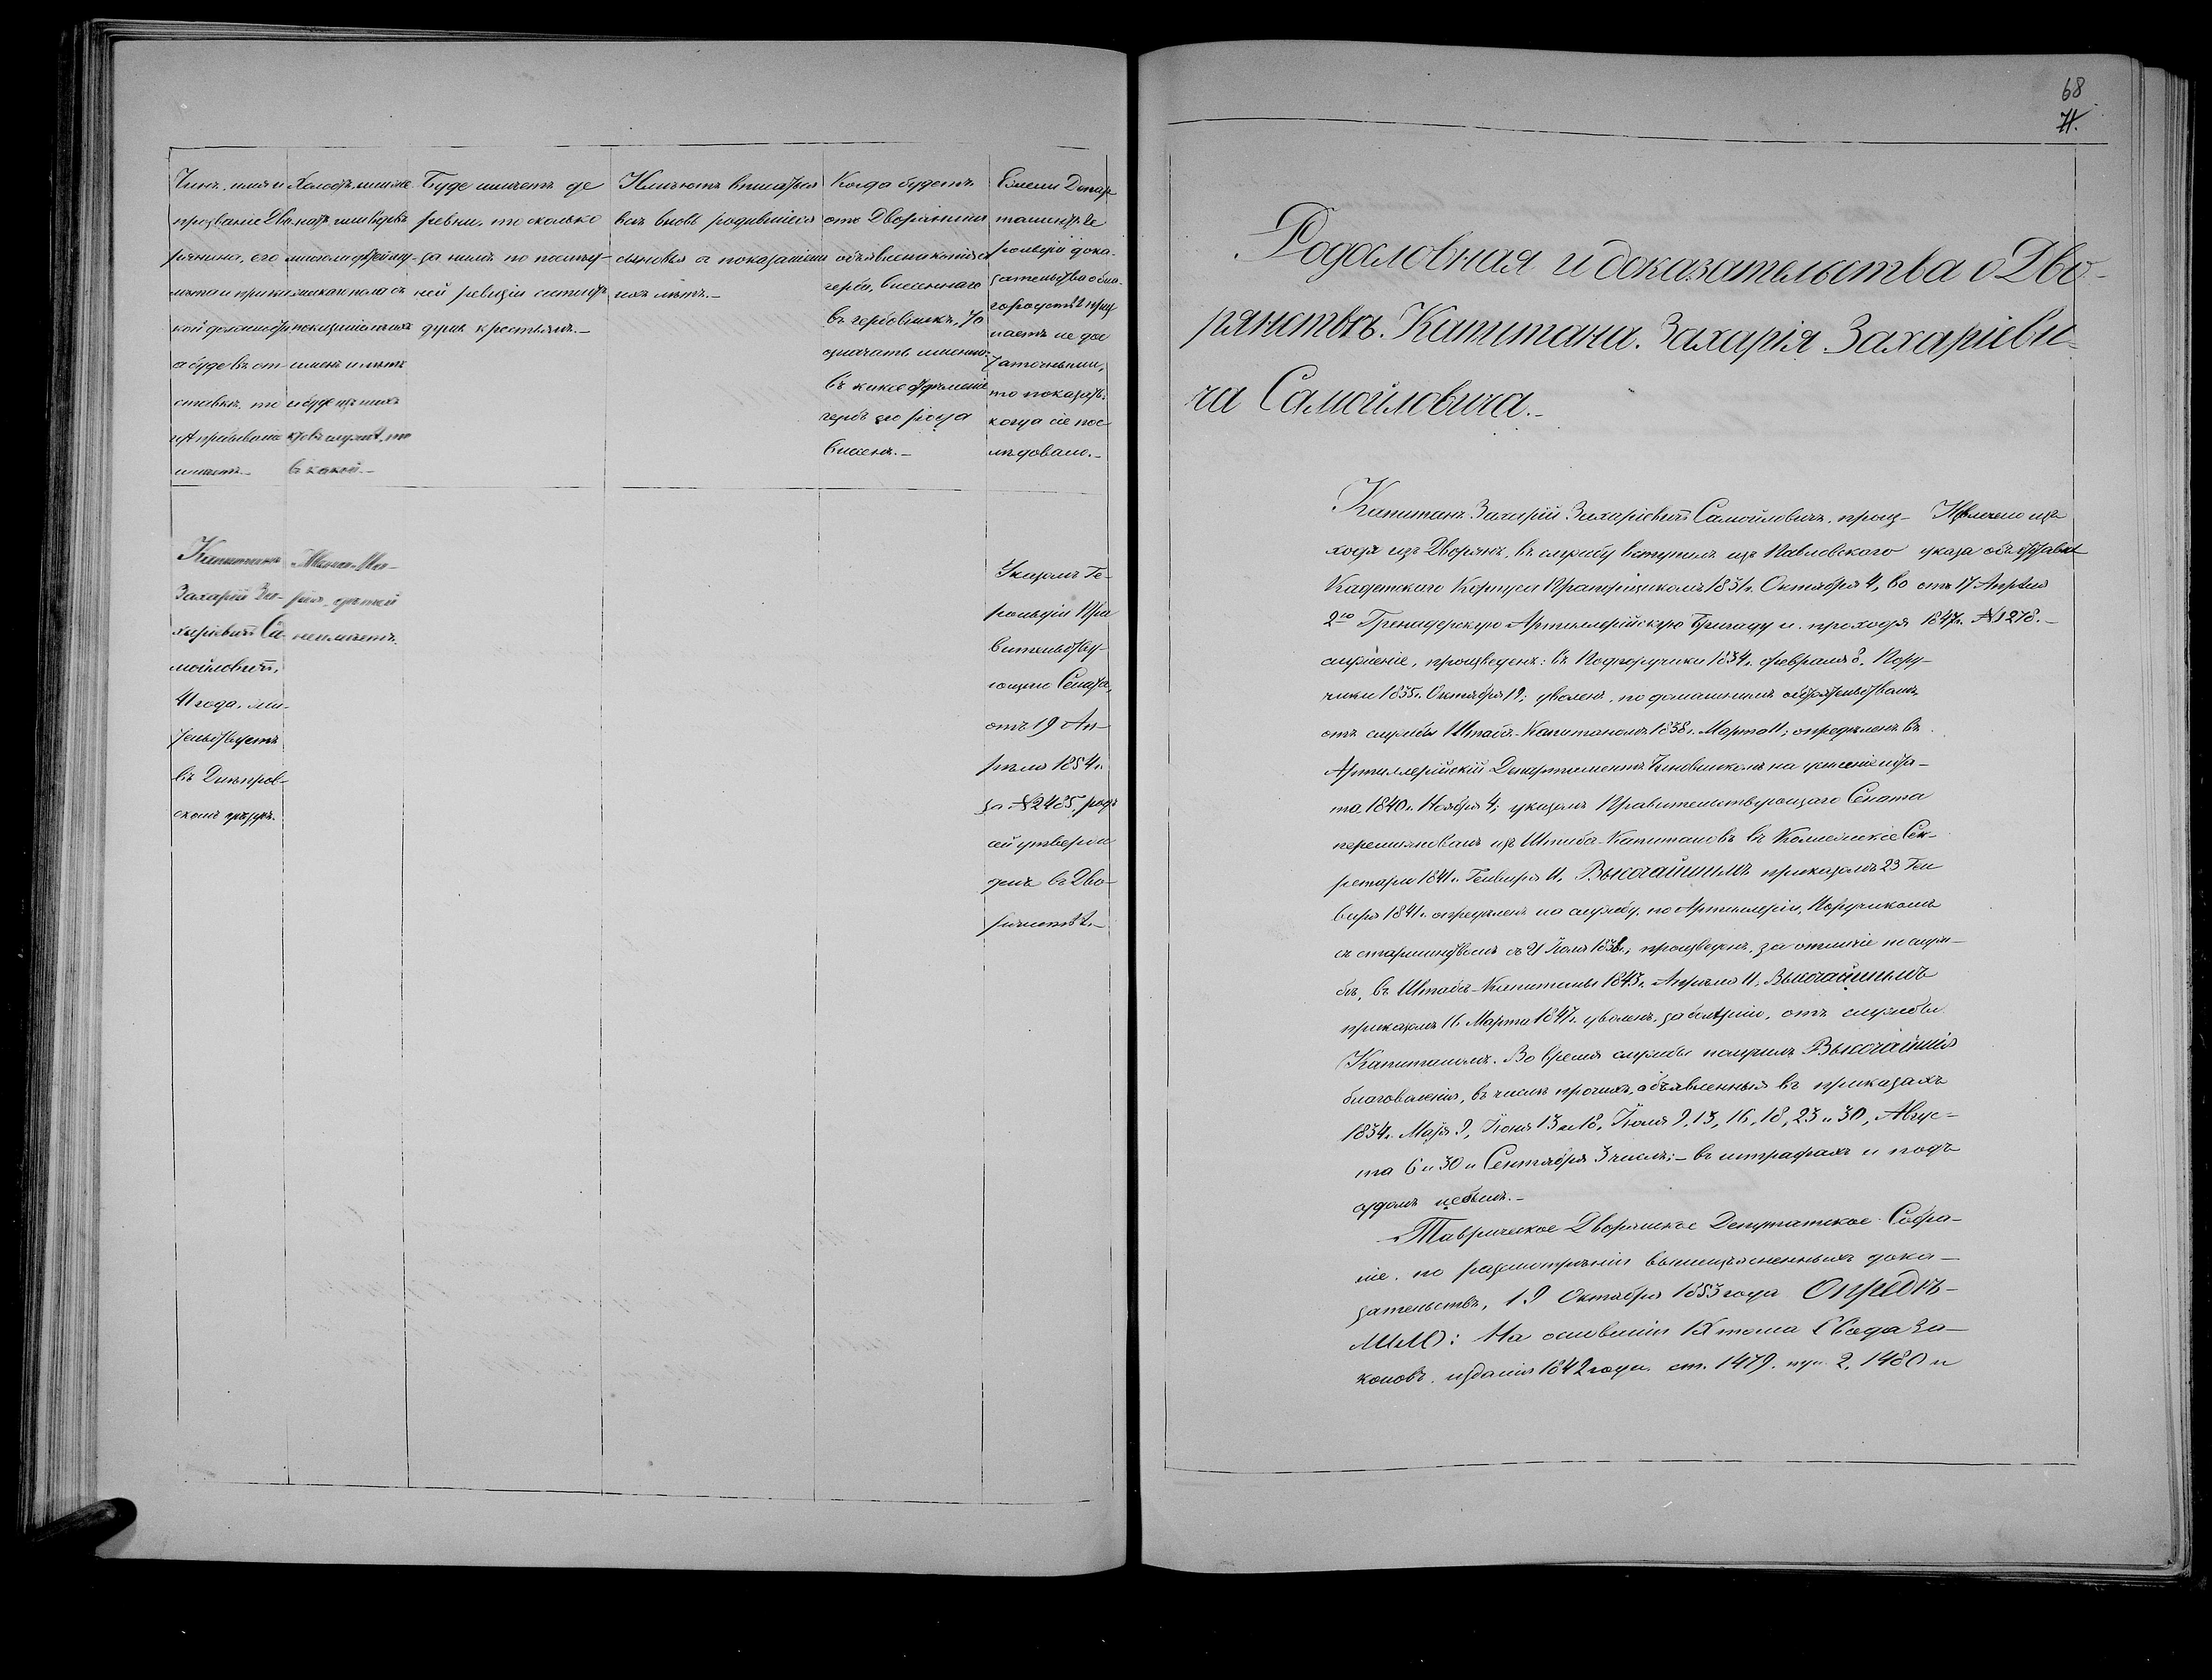 Чинъ, имя и
прозваніе Дво-
рянина, его
лѣта и при ка-
кой должности,
а буде въ от-
ставкѣ, то
гдѣ пребываніе
имѣетъ.-
Холостъ, или же-
натъ или вдовъ
мужеска пола съ
имена и лѣта
и буде изъ нихъ
кто въ службѣ, то
въ какой.-
Буде имѣетъ де
ревни, то сколько
за нимъ по послѣд-
ней ревизіи состоитъ
душъ крестьянъ.-
Имѣютъ вписаться
всѣ вновь родившіеся
сыновья съ показаніемъ
ихъ лѣтъ.-
Когда будетъ
отъ Дворянина
объявлена копія съ
герба, внесеннаго
въ гербовникъ, то
означать именно
въ какое отдѣленіе
гербъ его рода
внесенъ.-
Ежели Депар
таментъ Ге
рольдіи дока-
зательства о бла-
городствѣ приз
наетъ не дос
таточными,
то показать:
когда сіе пос
лѣдовало.-
Капитанъ
Захарій За-
харіевичъ Са
мойловичъ,
41 года, жи-
тельствуетъ
въ Днѣпров-
скомъ уѣздѣ.
Жена Ма-
рія, дѣтей
неимѣетъ.
Указомъ Ге-
рольдіи Пра
вительству-
ющаго Сената,
отъ 19 Ап-
рѣля 1854 г.
за № 2485, родъ
сей утверж
денъ въ Дво-
рянствѣ.-
68
71.
Родословная и доказательства о Дво-
рянствѣ. Капитана. Захарія Захаріеви-
ча Самойловича.-
Капитанъ Захарій Захаріевичъ Самойловичъ, проис-
ходя изъ Дворянъ, въ службу вступилъ изъ Павловского
Кадетского Корпуса Прапорщикомъ 1831 г. Октября 4, во
2ю Гренадерскую Артиллерійскую Бригаду и, проходя
служеніе, произведенъ: въ Подпоручики 1834 г. февраля 8, Пору-
чики 1835 г. Октября 19; уволенъ, по домашнимъ обстоятельствамъ,
отъ службы Штабсъ-Капитаномъ 1838 г. Марта 11; опредѣленъ въ
Артиллерійскій Департаментъ Чиновникомъ на усиленіе шта-
та 1840 г. Ноября 4; указомъ Правительствующаго Сената
переименованъ изъ Штабсъ-Капитановъ въ Коллежскіе Сек-
ретари 1841 г. Генваря 11, Высочайшимъ приказомъ 23 Ген
варя 1841 г. опредѣленъ на службу, по Артиллеріи, Поручикомъ
съ старшинствомъ съ 21 Іюля 1838 г.; произведенъ, за отличіе по служ-
бѣ, въ Штабсъ-Капитаны 1843 г. Апрѣля 11, Высочайшимъ
приказомъ 16 Марта 1847 г. уволенъ, за болѣзнію, отъ службы
Капитаномъ. Во время службы получилъ Высочайшія
благоволенія, въ числѣ прочихъ, объявленныя въ приказахъ
1834 г. Маія 9, Іюня 13 и 18, Іюля 9, 13, 16, 18, 23 и 30, Авгус-
та 6 и 30 и Сентября 3 числъ; - въ штрафахъ и подъ
судомъ небылъ.-
Извлечено изъ
указа объ отставкѣ
отъ 17 Апрѣля
1847 г. № 1278.-
Таврическое Дворянское Депутатское Собра-
ніе, по разсмотрѣніи вышеизъясненныхъ дока-
зательствъ, 19 Октября 1853 года Опредѣ-
лило: На основаніи IX тома Свода За-
коновъ, изданія 1842 года, ст. 1479. пун. 2, 1480 и